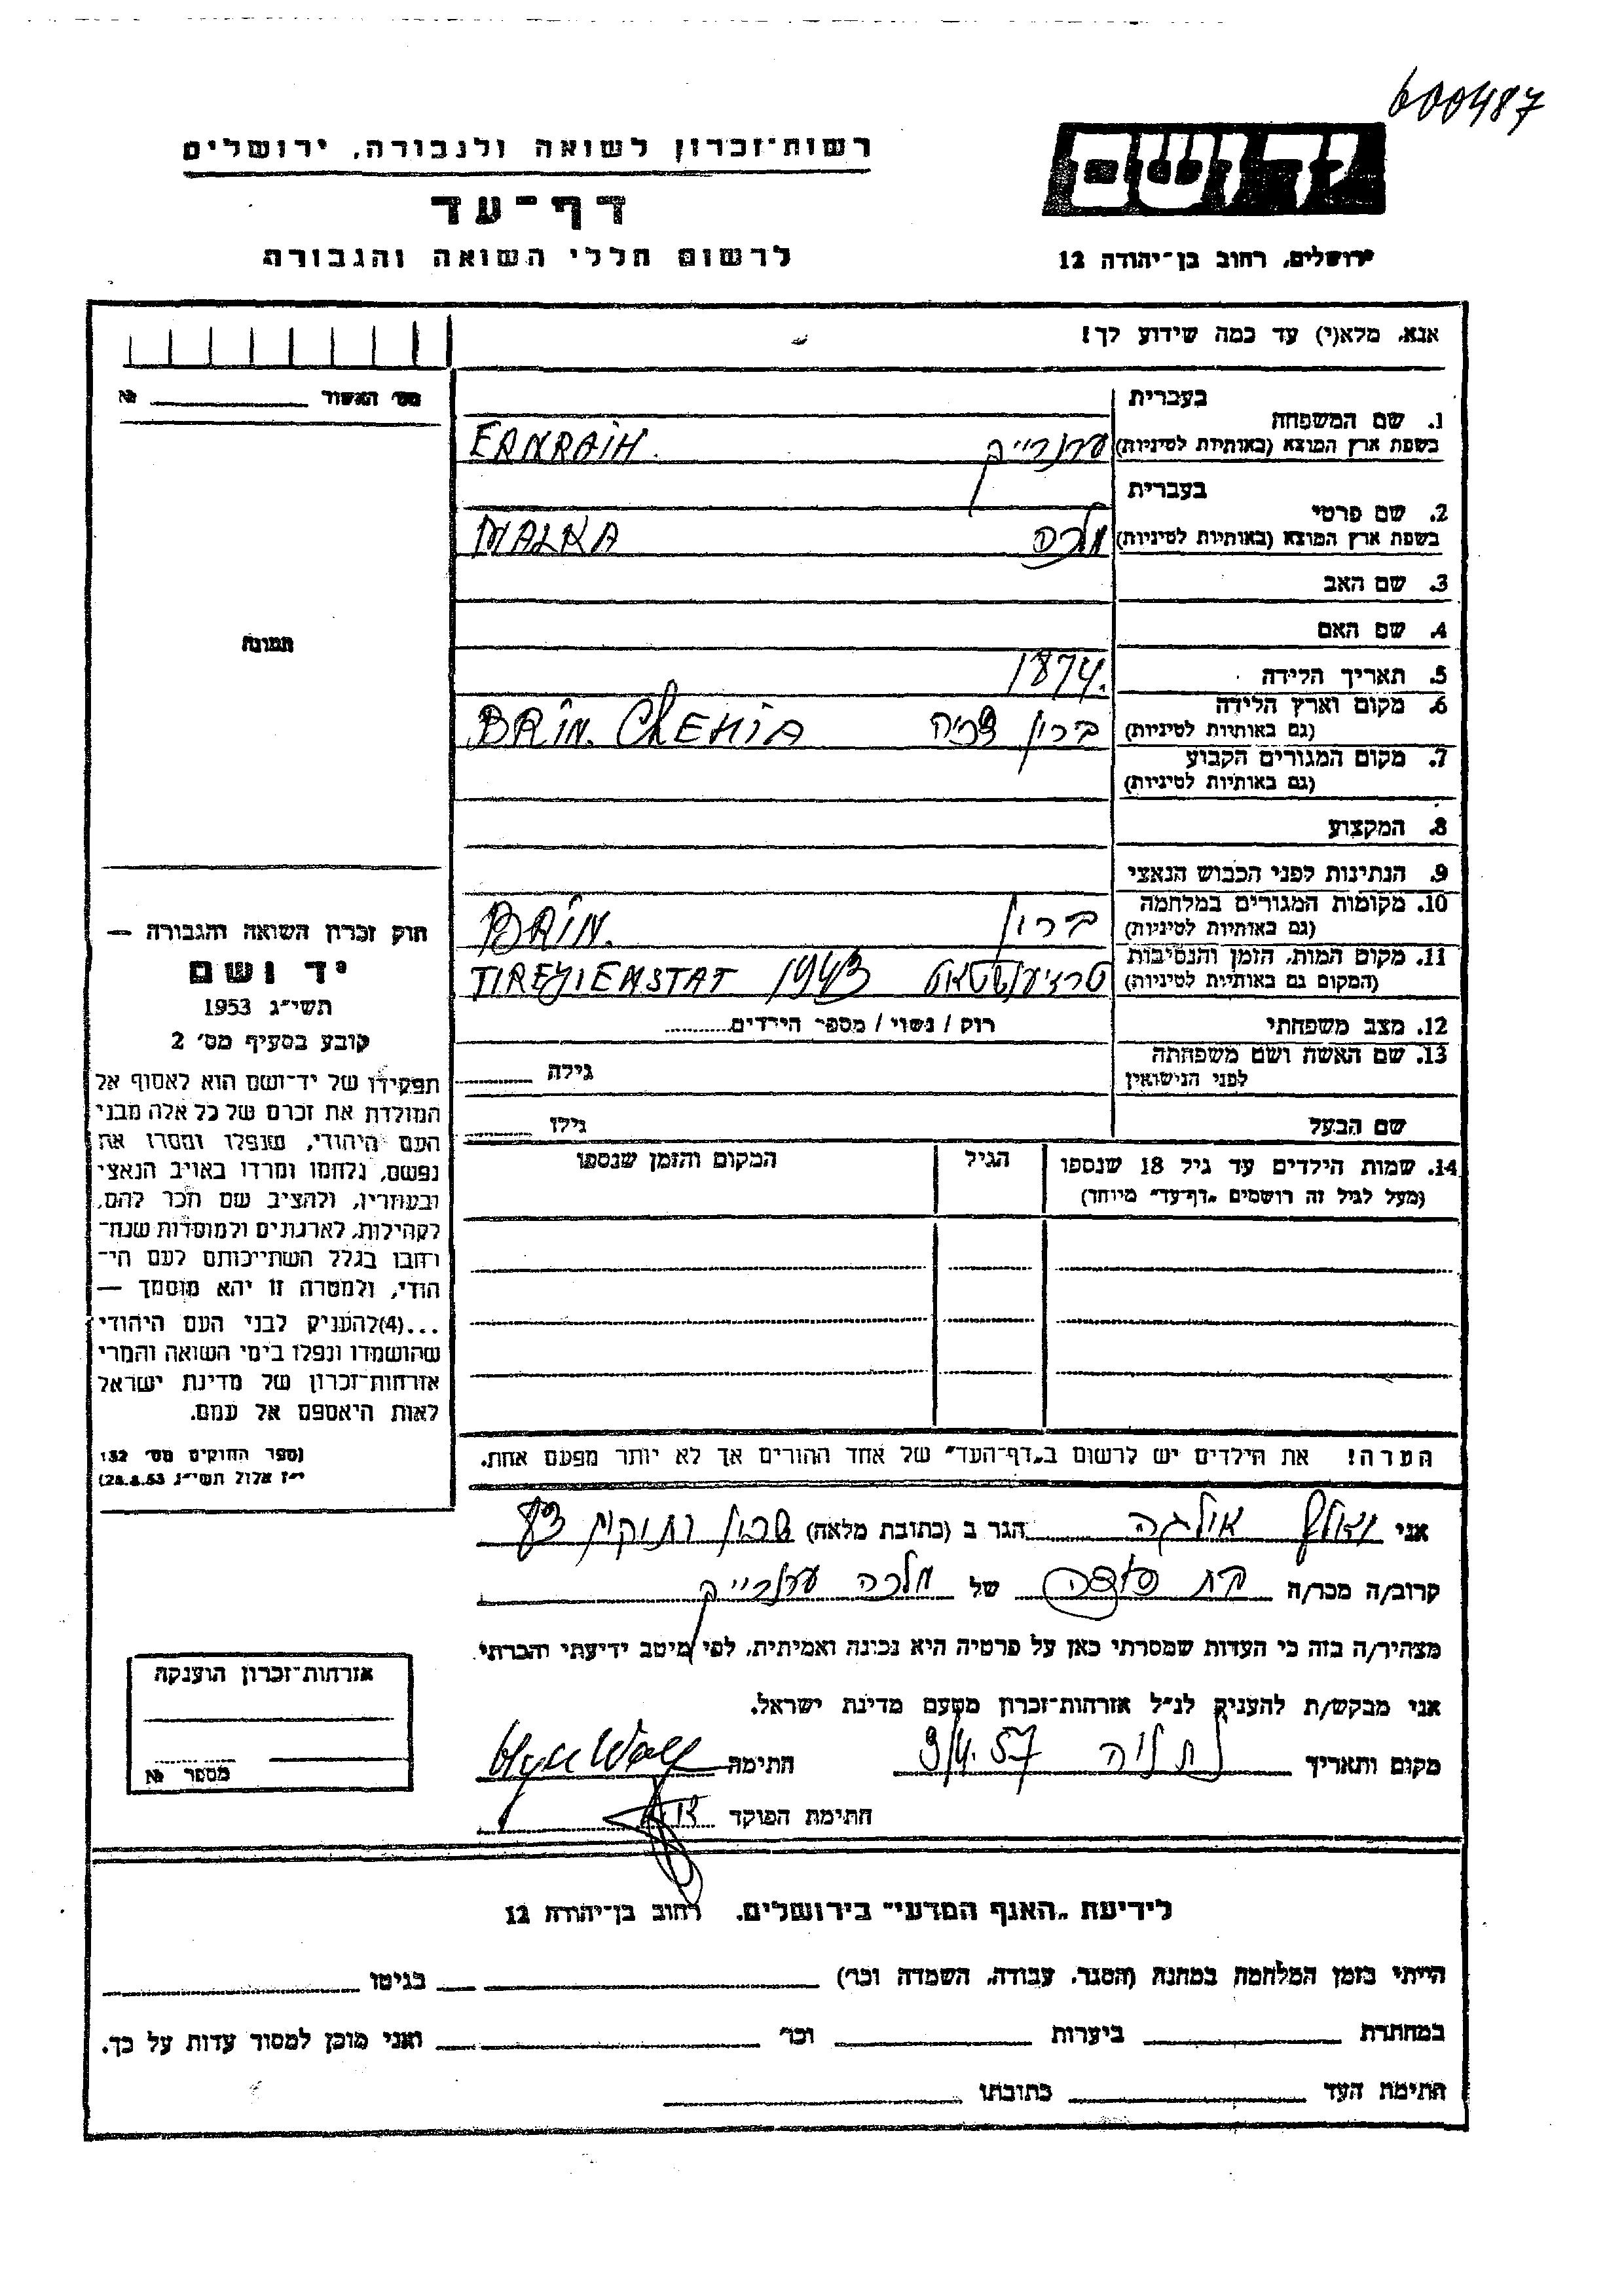 600487
יד ושם
רשות־זכרון לשואה ולגבורה, ירושלים
דף־עד
לרשום חללי השואה והגבורה
ירושלים, רחוב בן־יהודה 12
אנא, מלא(י) עד כמה שידוע לך!
מס׳ האשור № 
בעברית
1. שם המשפחה
בשפת ארץ המוצא (באותיות לטיניות) ערנרייך ERNRAIH.
בעברית
2. שם פרטי
בשפת ארץ המוצא (באותיות לטיניות) מלכה MALKA
3. שם האב
4. שם האם
5. תאריך הלידה 1874.
6. מקום וארץ הלידה
(גם באותיות לטיניות) ברין צכיה BRIN. CHEHIA
7. מקום המגורים הקבוע
(גם באותיות לטיניות)
8. המקצוע
9. הנתינות לפני הכבוש הנאצי
10. מקומות המגורים במלחמה
(גם באותיות לטיניות) ברין BRIN.
11. מקום המות, הזמן והנסיבות
(המקום גם באותיות לטיניות) 1943
12. מצב משפחתי רוק / נשוי / מספר הילדים
13. שם האשה ושם משפחתה
לפני הנישואין גילה
שם הבעל גילו
14. שמות הילדים עד גיל 18 שנספו הגיל המקום והזמן שנספו
(מעל לגיל זה רושמים „דף־עד״ מיוחד)
הערה! את הילדים יש לרשום ב„דף־העד״ של אחד ההורים אך לא יותר מפעם אחת.
תמונה
חוק זכרון השואה והגבורה —
יד ושם
תשי״ג 1953
קובע בסעיף מס׳ 2
תפקידו של יד־ושם הוא לאסוף אל
המולדת את זכרם של כל אלה מבני
העם היהודי, שנפלו ומסרו את
נפשם, נלחמו ומרדו באויב הנאצי
ובעוזריו, ולהציב שם וזכר להם,
לקהילות, לארגונים ולמוסדות שנח־
רבו בגלל השתייכותם לעם הי־
הודי, ולמטרה זו יהא מוסמך —
...(4)להעניק לבני העם היהודי
שהושמדו ונפלו בימי השואה והמרי
אזרחות־זכרון של מדינת ישראל
לאות היאספם אל עמם.
(ספר החוקים מס׳ 132
י״ז אלול תשי״ג 28.8.53)
אני וואלף אולגה הגר ב (כתובת מלאה)
קרוב/ה מכר/ה של מלכה ערנרייך
מצהיר/ה בזה כי העדות שמסרתי כאן על פרטיה היא נכונה ואמיתית, לפי מיטב ידיעתי והכרתי.
אני מבקש/ת להעניק לנ״ל אזרחות־זכרון מטעם מדינת ישראל.
מקום ותאריך נתניה 9/4.57 חתימה
חתימת הפוקד
אזרחות־זכרון הוענקה
מספר №
לידיעת „האגף המדעי״ בירושלים, רחוב בן־יהודה 12
הייתי בזמן המלחמה במחנה (הסגר, עבודה, השמדה וכו׳) בגיטו
במחתרת ביערות וכו׳ ואני מוכן למסור עדות על כך.
חתימת העד כתובתו